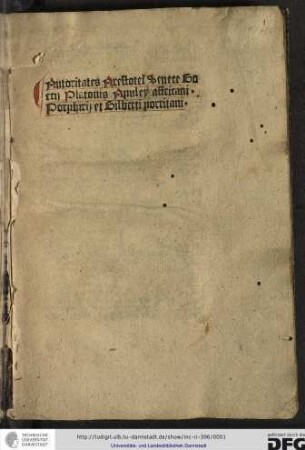 Autoritates Arestotel' Senece Bo
ecij Platonis Apuley affricani·
Porphirij et Gilberti porritani·
TECHNISCHE
UNIVERSITÄT
DARMSTADT
http://tudigit.ulb.tu-darmstadt.de/show/inc-ii-396/0001
Universitäts- und Landesbibliothek Darmstadt
gefördert durch die
DFG